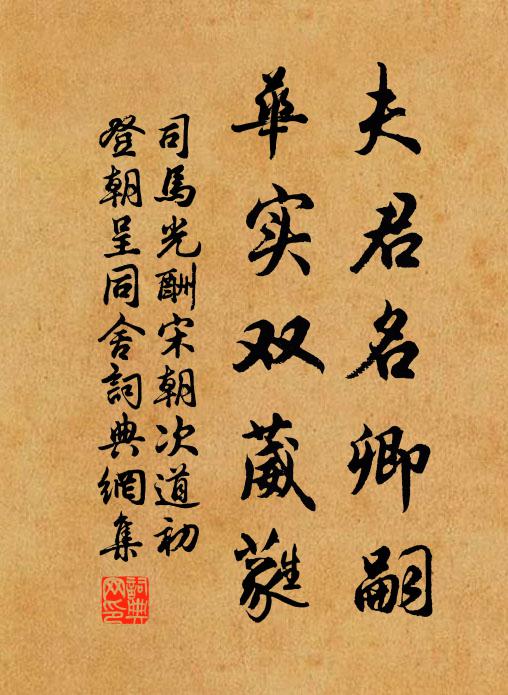 夫君名卿嗣
华实双葳蕤
司馬光酬宋朝次道初
登朝呈同舍詞典網集
詞典網印